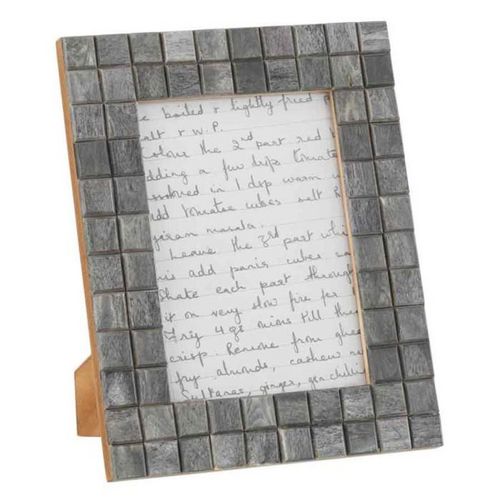 e boiled & lightly fried
alt & W.P.
Colour the 2nd part red
adding a few drps tomato
ssolved in 1 dsp warm
dd tomatoe cubes salt
garam masala.
Leave the 3rd part whi
is add panir cubes sa
Shake each part through
it on very slow fire for
Fry 4 gs onions till the
crisp. Remove from ghee
fry almonds, cashew nu
Sultanas, ginger, grn chilli